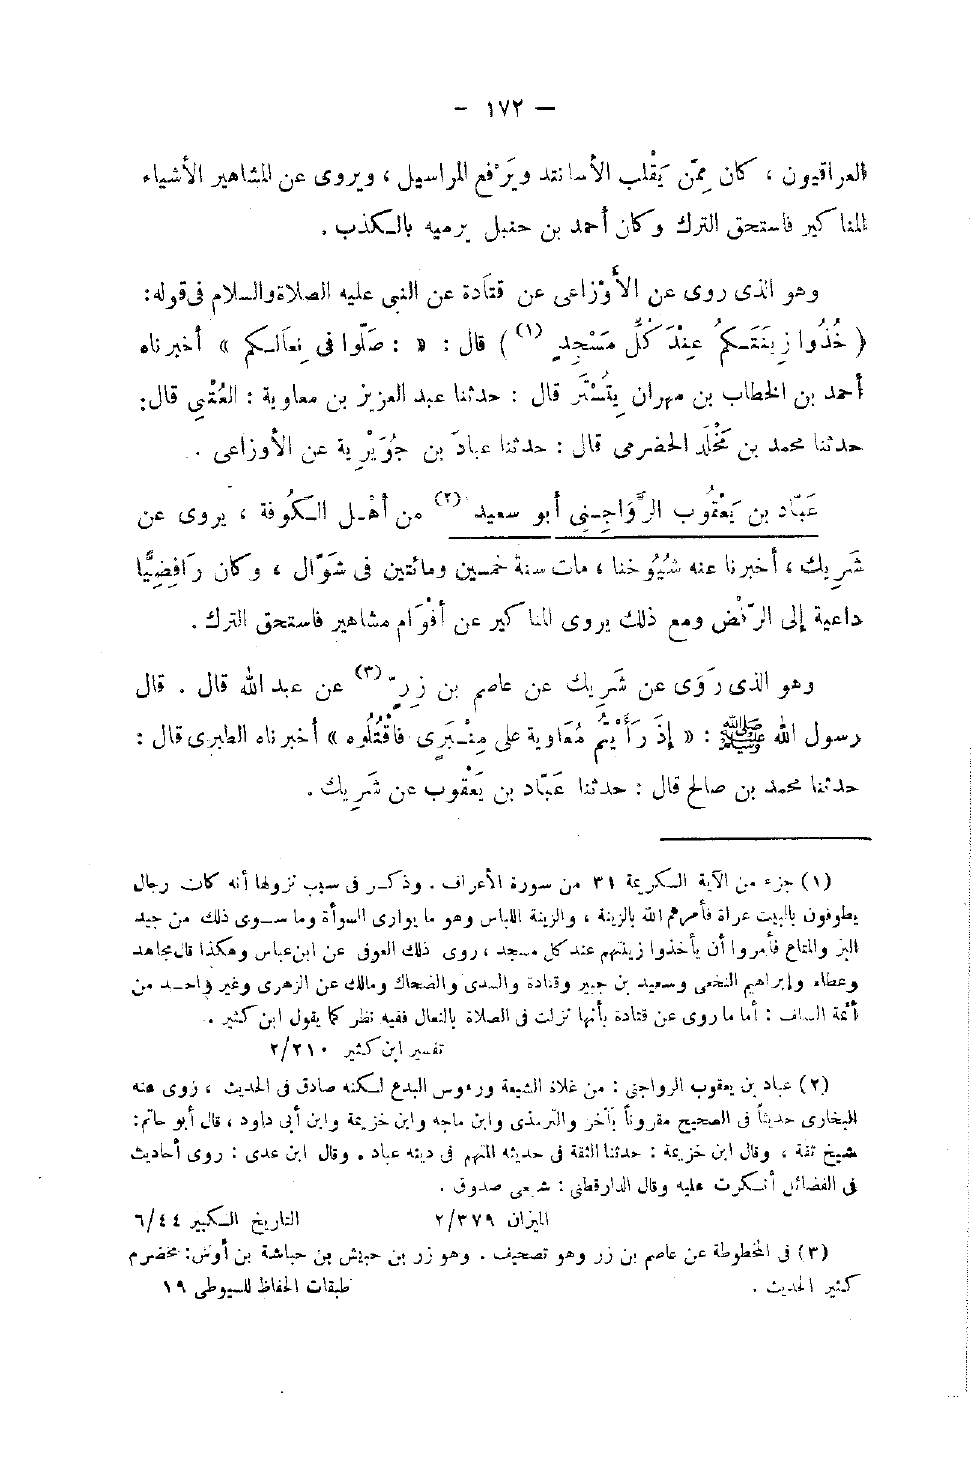 — ١٧٢ —
العراقيون ، كان مِمّن يَقْلب الأسانتد ويَرْفع المراسيل ، ويروى عن المشاهير الأشياء
المناكير فاستحق الترك وكان أحمد بن حنبل يرميه بالكذب .
وهو الذى روى عن الأَوْزاعى عن قتَادة عن النبى عليه الصلاة والسلام فى قوله :
( خُذُوا زِينَتَكمُ عِنْدَ كُلِّ مَسْجِدٍ (١) ) قال : « : صَلّوا فى نِعَالكم » أخبرناه
أحمد بن الخطاب بن مهران بِتُسْتَر قال : حدثنا عبد العزيز بن معاوية : العُتْبِى قال :
حدثنا محمد بن مَخْلَد الحضرمى قال : حدثنا عبادَ بن جُوَيْرِية عن الأوزاعى .
عَبّاد بن يَعْقُوب الرَّوَاجِنِى أبو سعيد (٢) من أهْل الكُوفة ، يروى عن
شَرِيك ، أخبرنا عنه شُيُوخنا ، مات سنة خمسين ومائتين فى شوّال ، وكان رَافِضِيًّا
داعية إلى الرّفْض ومع ذلك يروى المناكير عن أقْوَام مشاهير فاستحق الترك .
وهو الذى رَوَى عن شَرِيك عن عاصم بن زِرّ (٣) عن عبد الله قال . قال
رسول الله ﷺ : « إذَ رَأَيْتُمْ مُعَاوية على مِنْبَرِى فاقْتُلُوه » أخبرناه الطبرى قال :
حدثنا محمد بن صالح قال : حدثنا عَبّاد بن يَعْقوب عن شَرِيك .
(١) جزء من الآية الكريمة ٣١ من سورة الأعراف . وذكر فى سبب نزولها أنه كان رجال
يطوفون بالبيت عراة فأمرهم الله بالزينة ، والزينة اللباس وهو ما يوارى السوأة وما سوى ذلك من جيد
البز والمتاع فأمروا أن يأخذوا زينتهم عند كل مسجد ، روى ذلك العوفى عن ابن عباس وهكذا قال مجاهد
وعطاء وإبراهيم النخعى وسعيد بن جبير وقتادة والسدى والضحاك ومالك عن الزهرى وغير واحد من
أئمة السلف : أما ما روى عن قتادة بأنها نزلت فى الصلاة بالنعال ففيه نظر كما يقول ابن كثير .
تفسير ابن كثير ٢/٢١٠
(٢) عباد بن يعقوب الرواجنى : من غلاة الشيعة ورءوس البدع لكنه صادق فى الحديث ، روى عنه
البخارى حديثاً فى الصحيح مقروناً بآخر والترمذى وابن ماجه وابن خزيمة وابن أبى داود ، قال أبو حاتم :
شيخ ثقة ، وقال ابن خزيمة : حدثنا الثقة فى حديثه المتهم فى دينه عباد . وقال ابن عدى : روى أحاديث
فى الفضائل أنكرت عليه وقال الدارقطنى : شيعى صدوق .
الميزان ٢/٣٧٩ التاريخ الكبير ٦/٤٤
(٣) فى المخطوطة عن عاصم بن زر وهو تصحيف . وهو زر بن حبيش بن حباشة بن أوس : مخضرم
كثير الحديث . طبقات الحفاظ للسيوطى ١٩